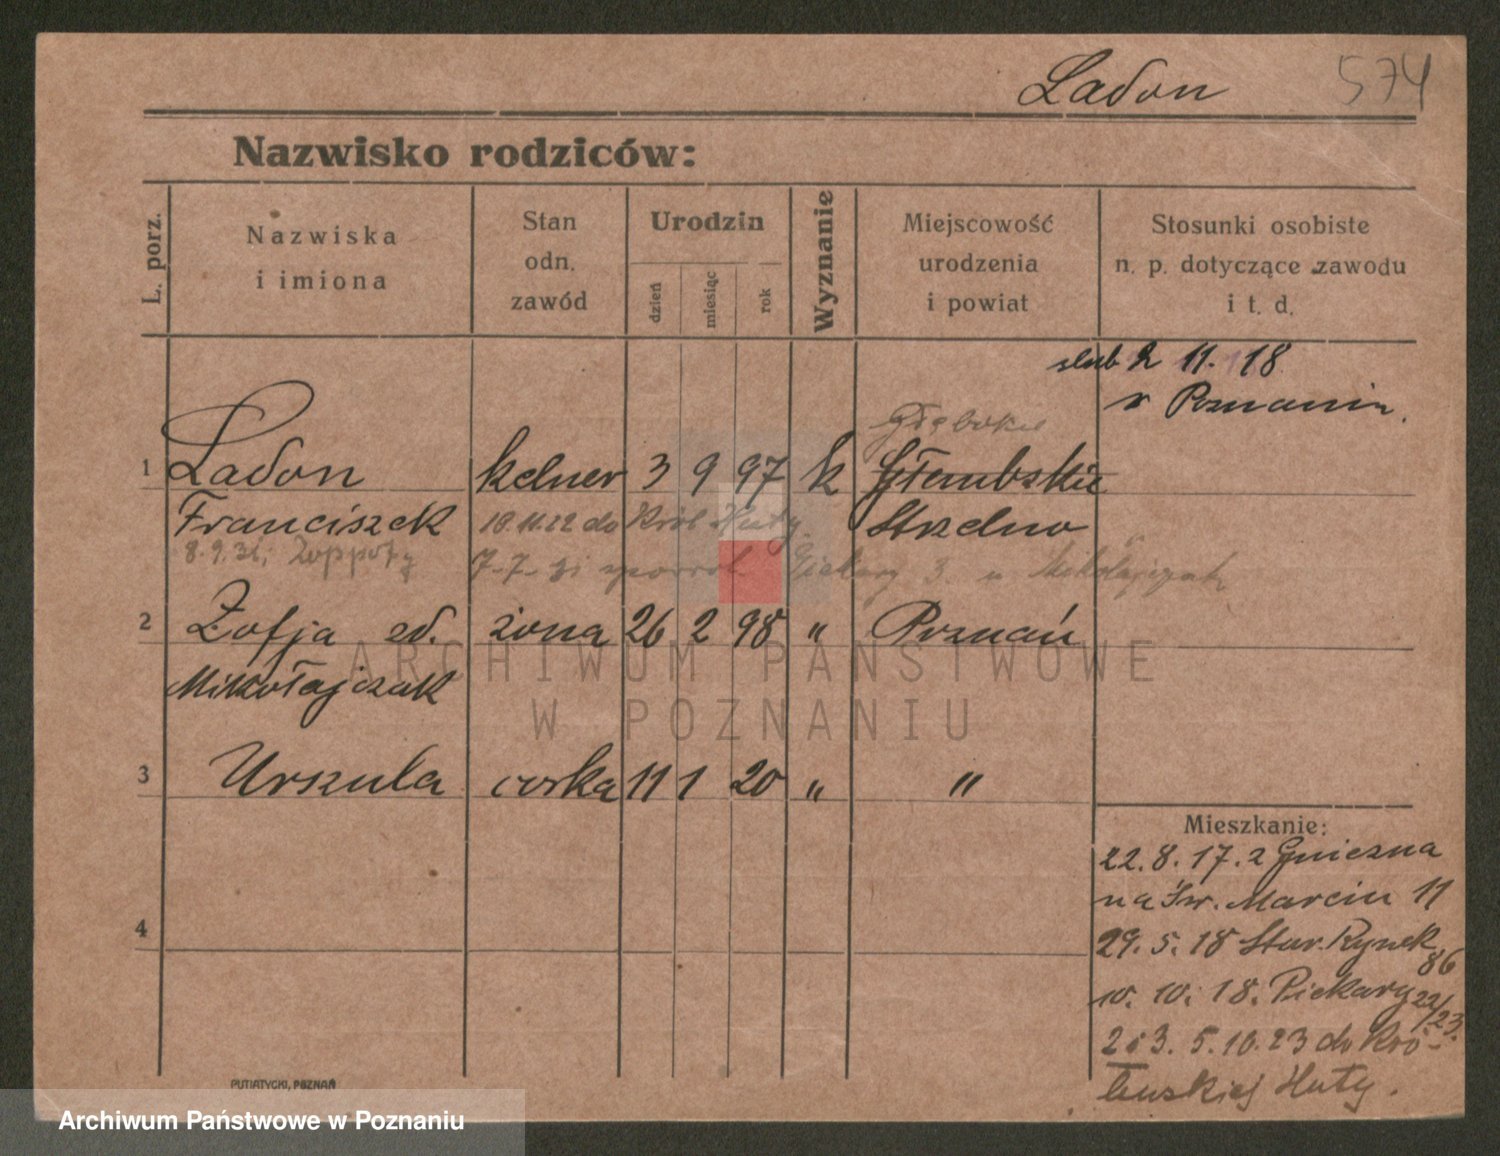 Ladon 574
Nazwisko rodziców:
L. porz.
Nazwiska
i imiona
Stan
odn.
zawód
Urodzin
dzień
miesiąc
rok
Wyznanie
Miejscowość
urodzenia
i powiat
Stosunki osobiste
n. p. dotyczące zawodu
i t. d.
slub 2 11. 18
w Poznaniu.
Głębokie
1 Ladon kelner 3 9 97 k Głembskie
Franciszek 10.11.22 do Król Huty. Strzelno
8.9.31; Zoppoty 7-7-31 Piekary 3. u Mikołajczak
2 Zofja zd. żona 26 2 98 " Poznań
Mikołajczak
ARCHIWUM PAŃSTWOWE
W POZNANIU
3 Urszula corka 11 1 20 " "
Mieszkanie:
22.8.17. z Gniezna
na Św. Marcin 11
29.5.18 Star. Rynek
86
10.10.18. Piekary 22/23.
2 i 3. 5.10.23 do Kró-
lewskiej Huty.
4
PUTIATYCKI, POZNAŃ
Archiwum Państwowe w Poznaniu